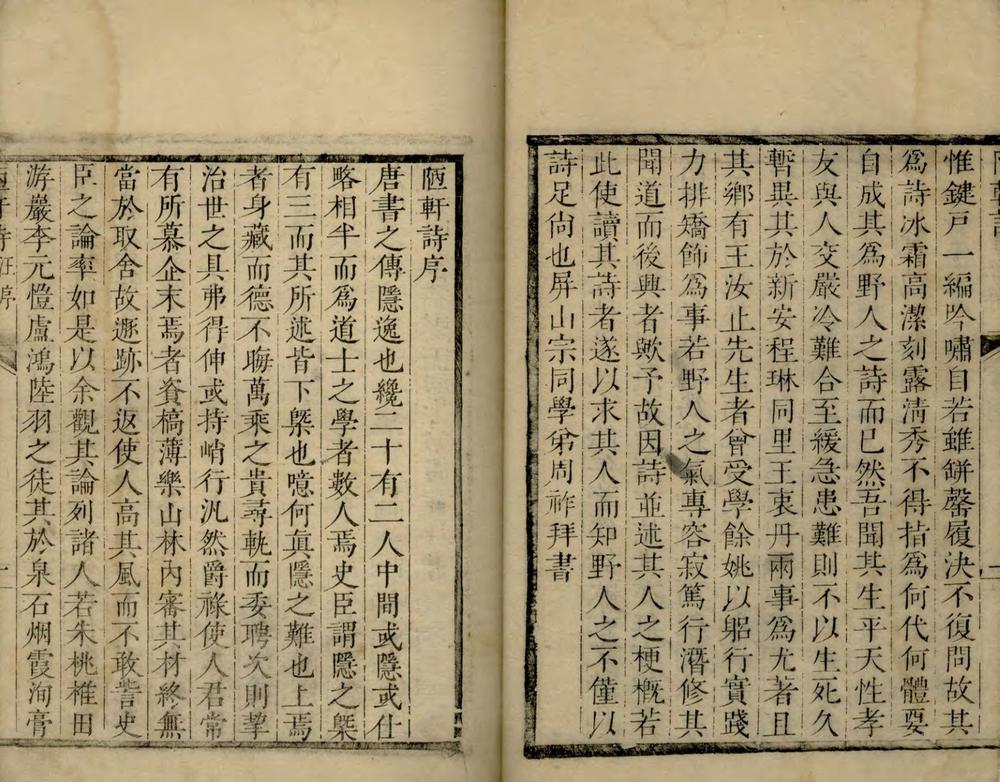 惟鍵戸一編吟嘯自若雖缾罄履決不復問故其
爲詩冰霜高潔刻露淸秀不得指爲何代何體要
自成其爲野人之詩而已然吾聞其生平天性孝
友與人交嚴冷難合至緩急患難則不以生死久
暫異其於新安程琳同里王衷丹兩事爲尤著且
其鄉有王汝止先生者曾受學餘姚以躬行實踐
力排矯飾爲事若野人之氣專容寂篤行潛修其
聞道而後興者歟予故因詩並述其人之梗槪若
此使讀其詩者遂以求其人而知野人之不僅以
詩足尙也屏山宗同學弟周祚拜書
陋軒詩序
唐書之傳隱逸也纔二十有二人中間或隱或仕
略相半而爲道士之學者數人焉史臣謂隱之槩
有三而其所述皆下槩也噫何眞隱之難也上焉
者身藏而德不晦萬乘之貴尋軌而委聘次則挈
治世之具弗得伸或持峭行汎然爵祿使人君常
有所慕企末焉者資槁薄樂山林內審其材終無
當於取舍故逃跡不返使人高其風而不敢訾史
臣之論率如是以余觀其論列諸人若朱桃椎田
游巖李元愷盧鴻陸羽之徒其於泉石烟霞洵膏